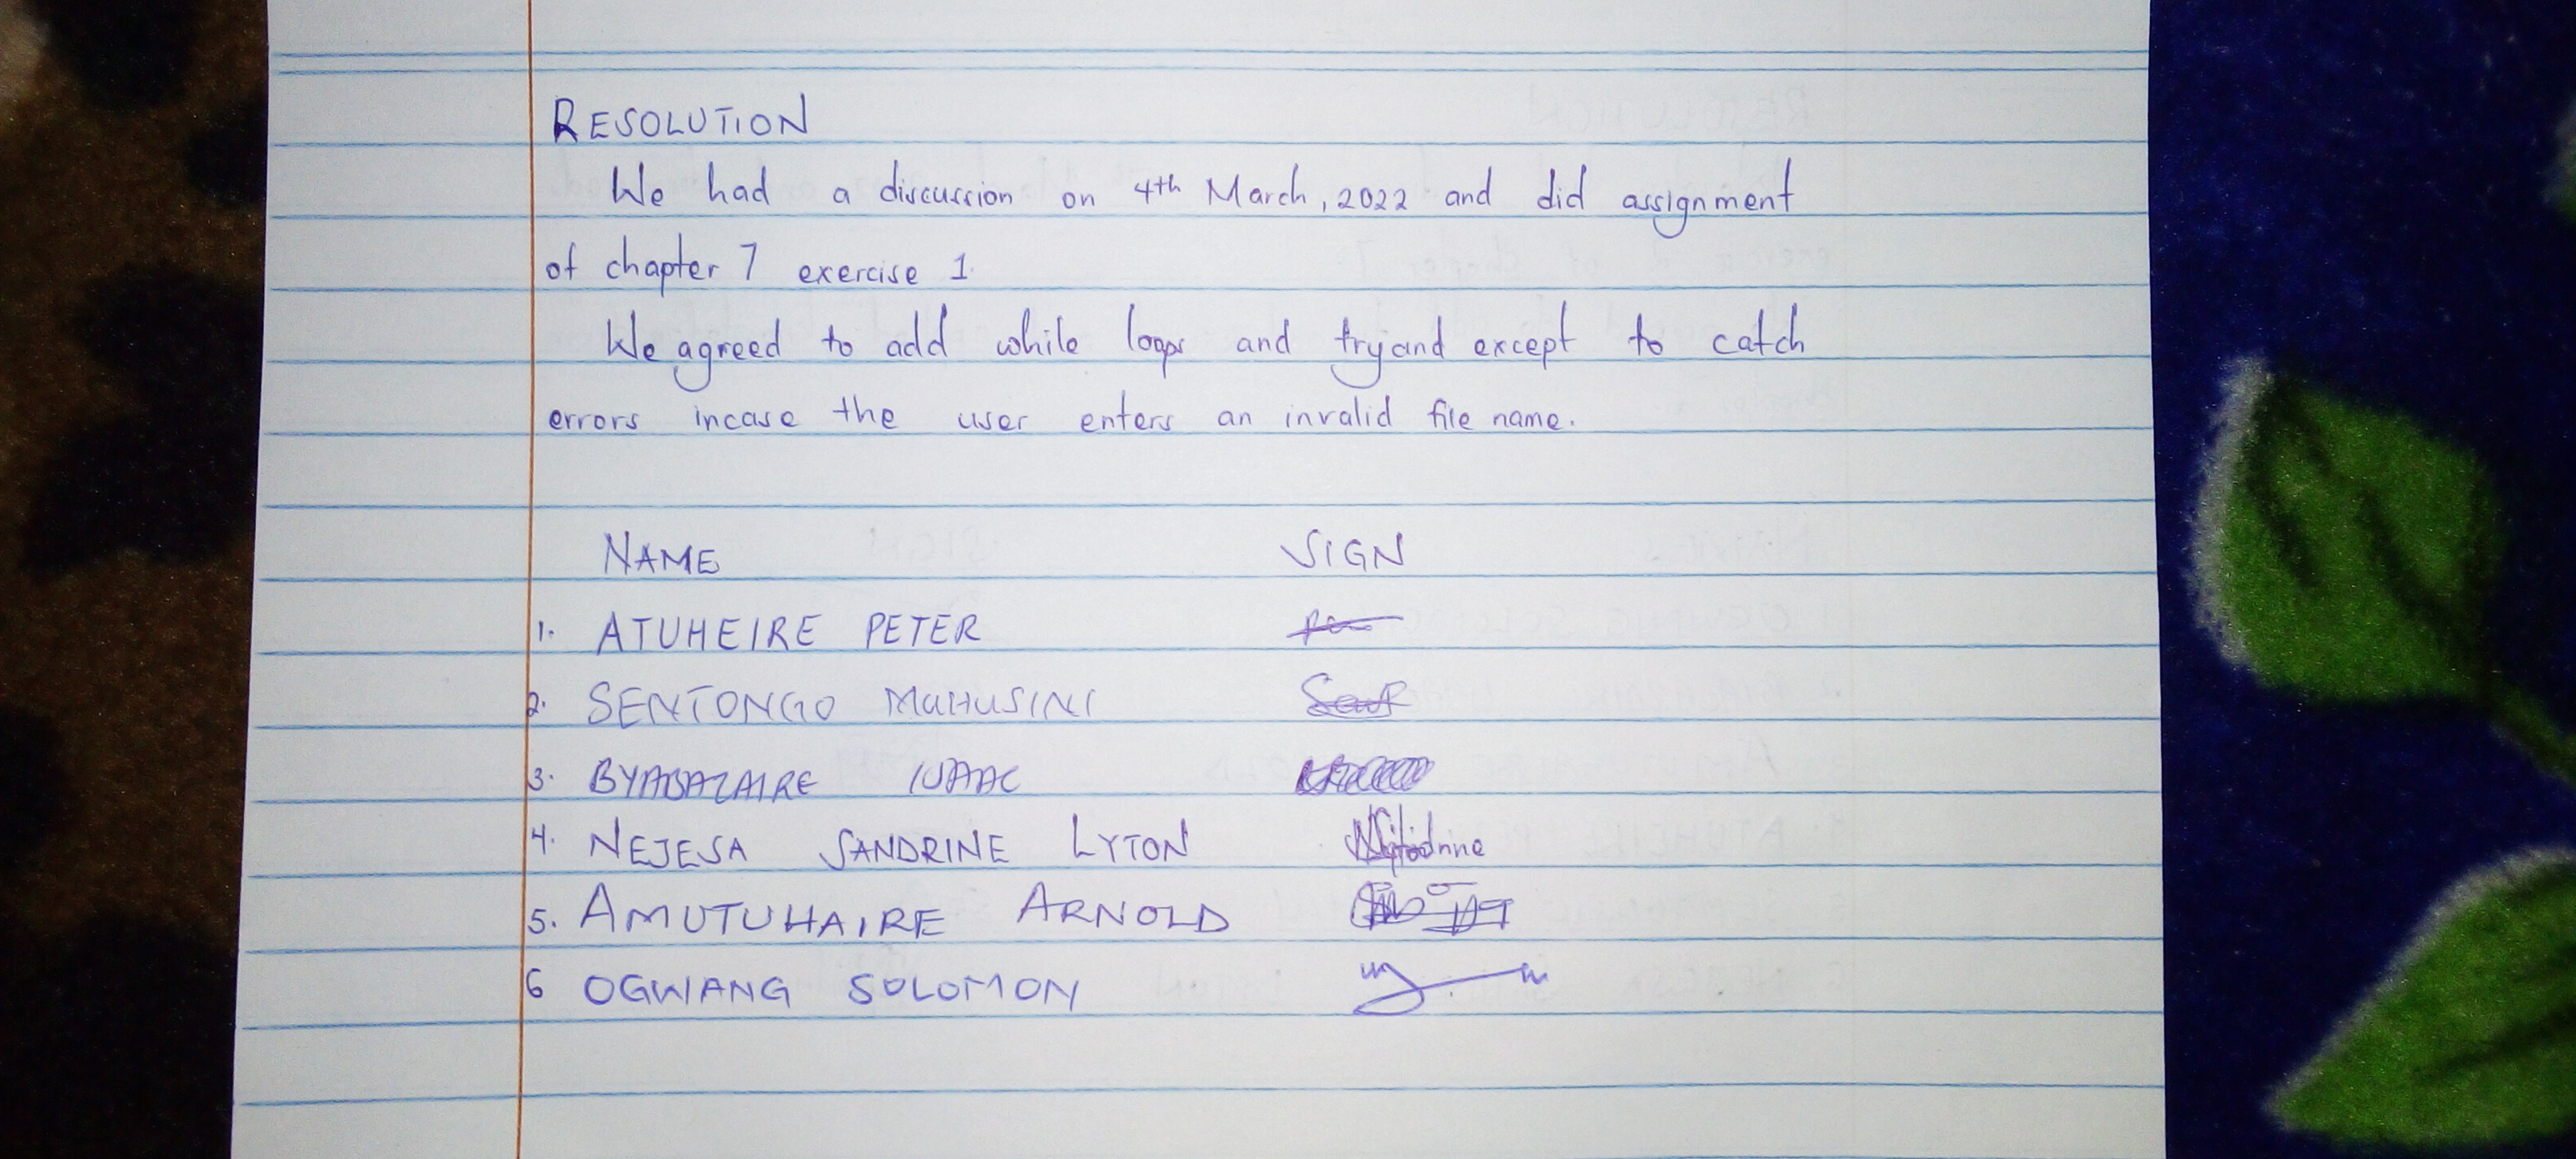 RESOLUTION
We had a discussion on 4th March, 2022 and did assignment
of chapter 7 exercise 1.
We agreed to add while loops and try and except to catch
errors incase the user enters an invalid file name.
NAME SIGN
1. ATUHEIRE PETER
2. SENTONGO MUHUSINI
3. BYABAZAIRE ISAAC
4. NEJESA SANDRINE LYTON
5. AMUTUHAIRE ARNOLD
6 OGWANG SOLOMON